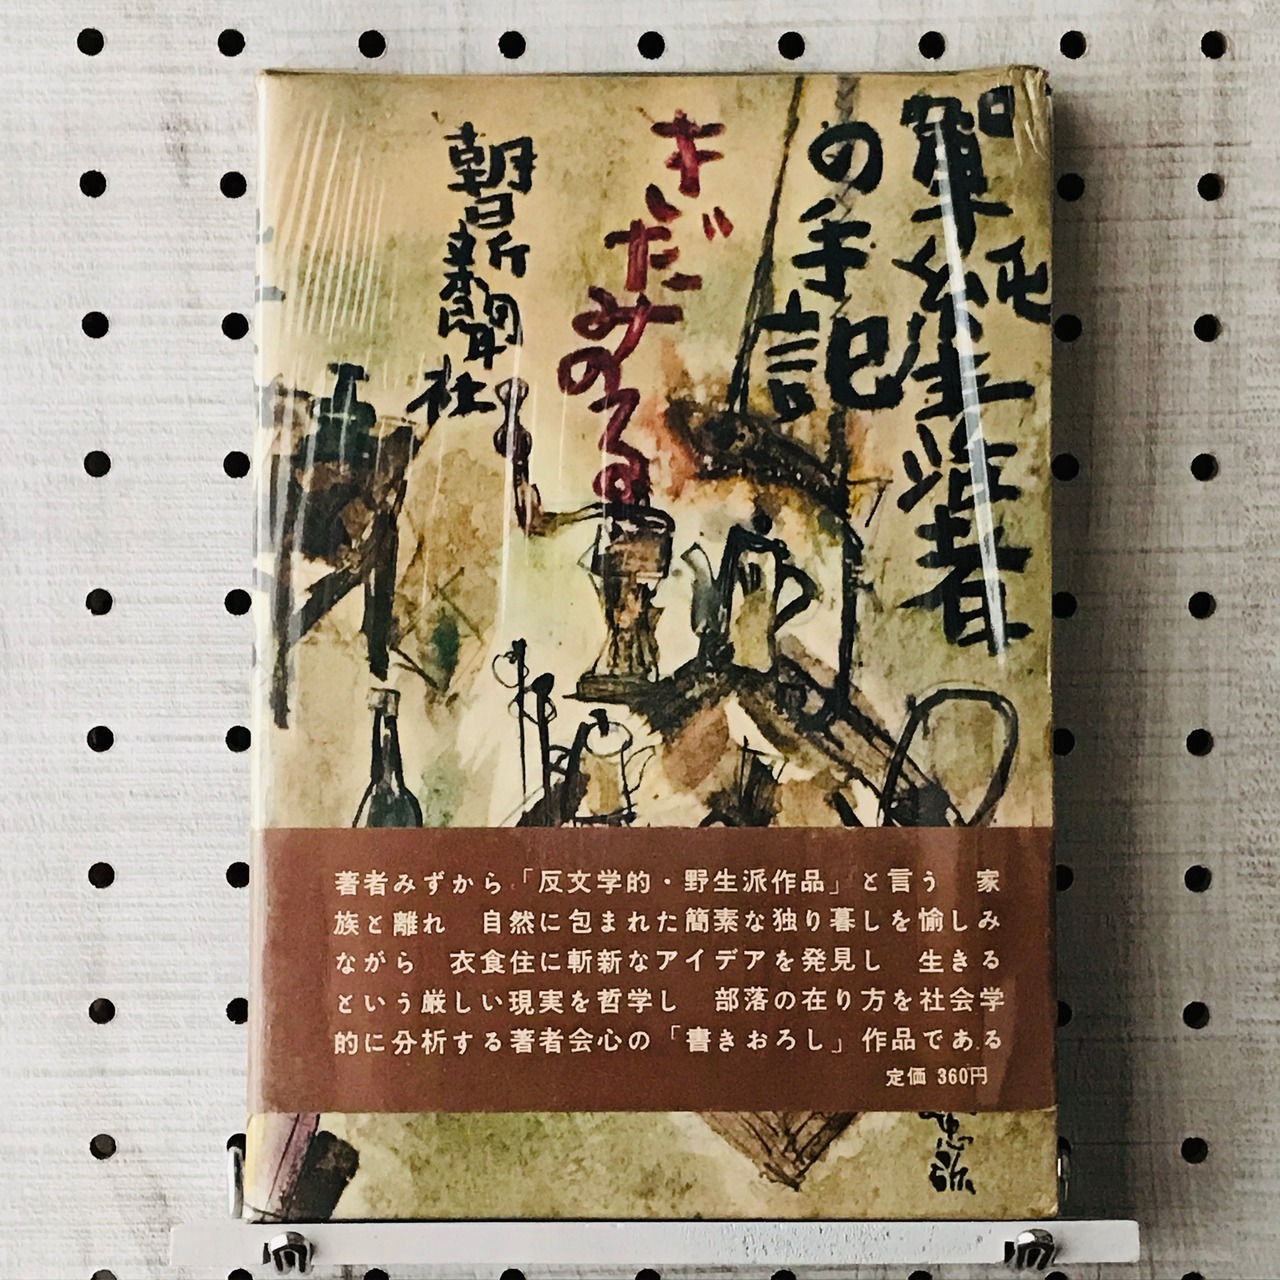 単純生活者
の手記
きだみのる
朝日新聞社
著者みずから「反文学的・野生派作品」と言う　家
族と離れ　自然に包まれた簡素な独り暮しを愉しみ
ながら　衣食住に斬新なアイデアを発見し　生きる
という厳しい現実を哲学し　部落の在り方を社会学
的に分析する著者会心の「書きおろし」作品である
定価 360円